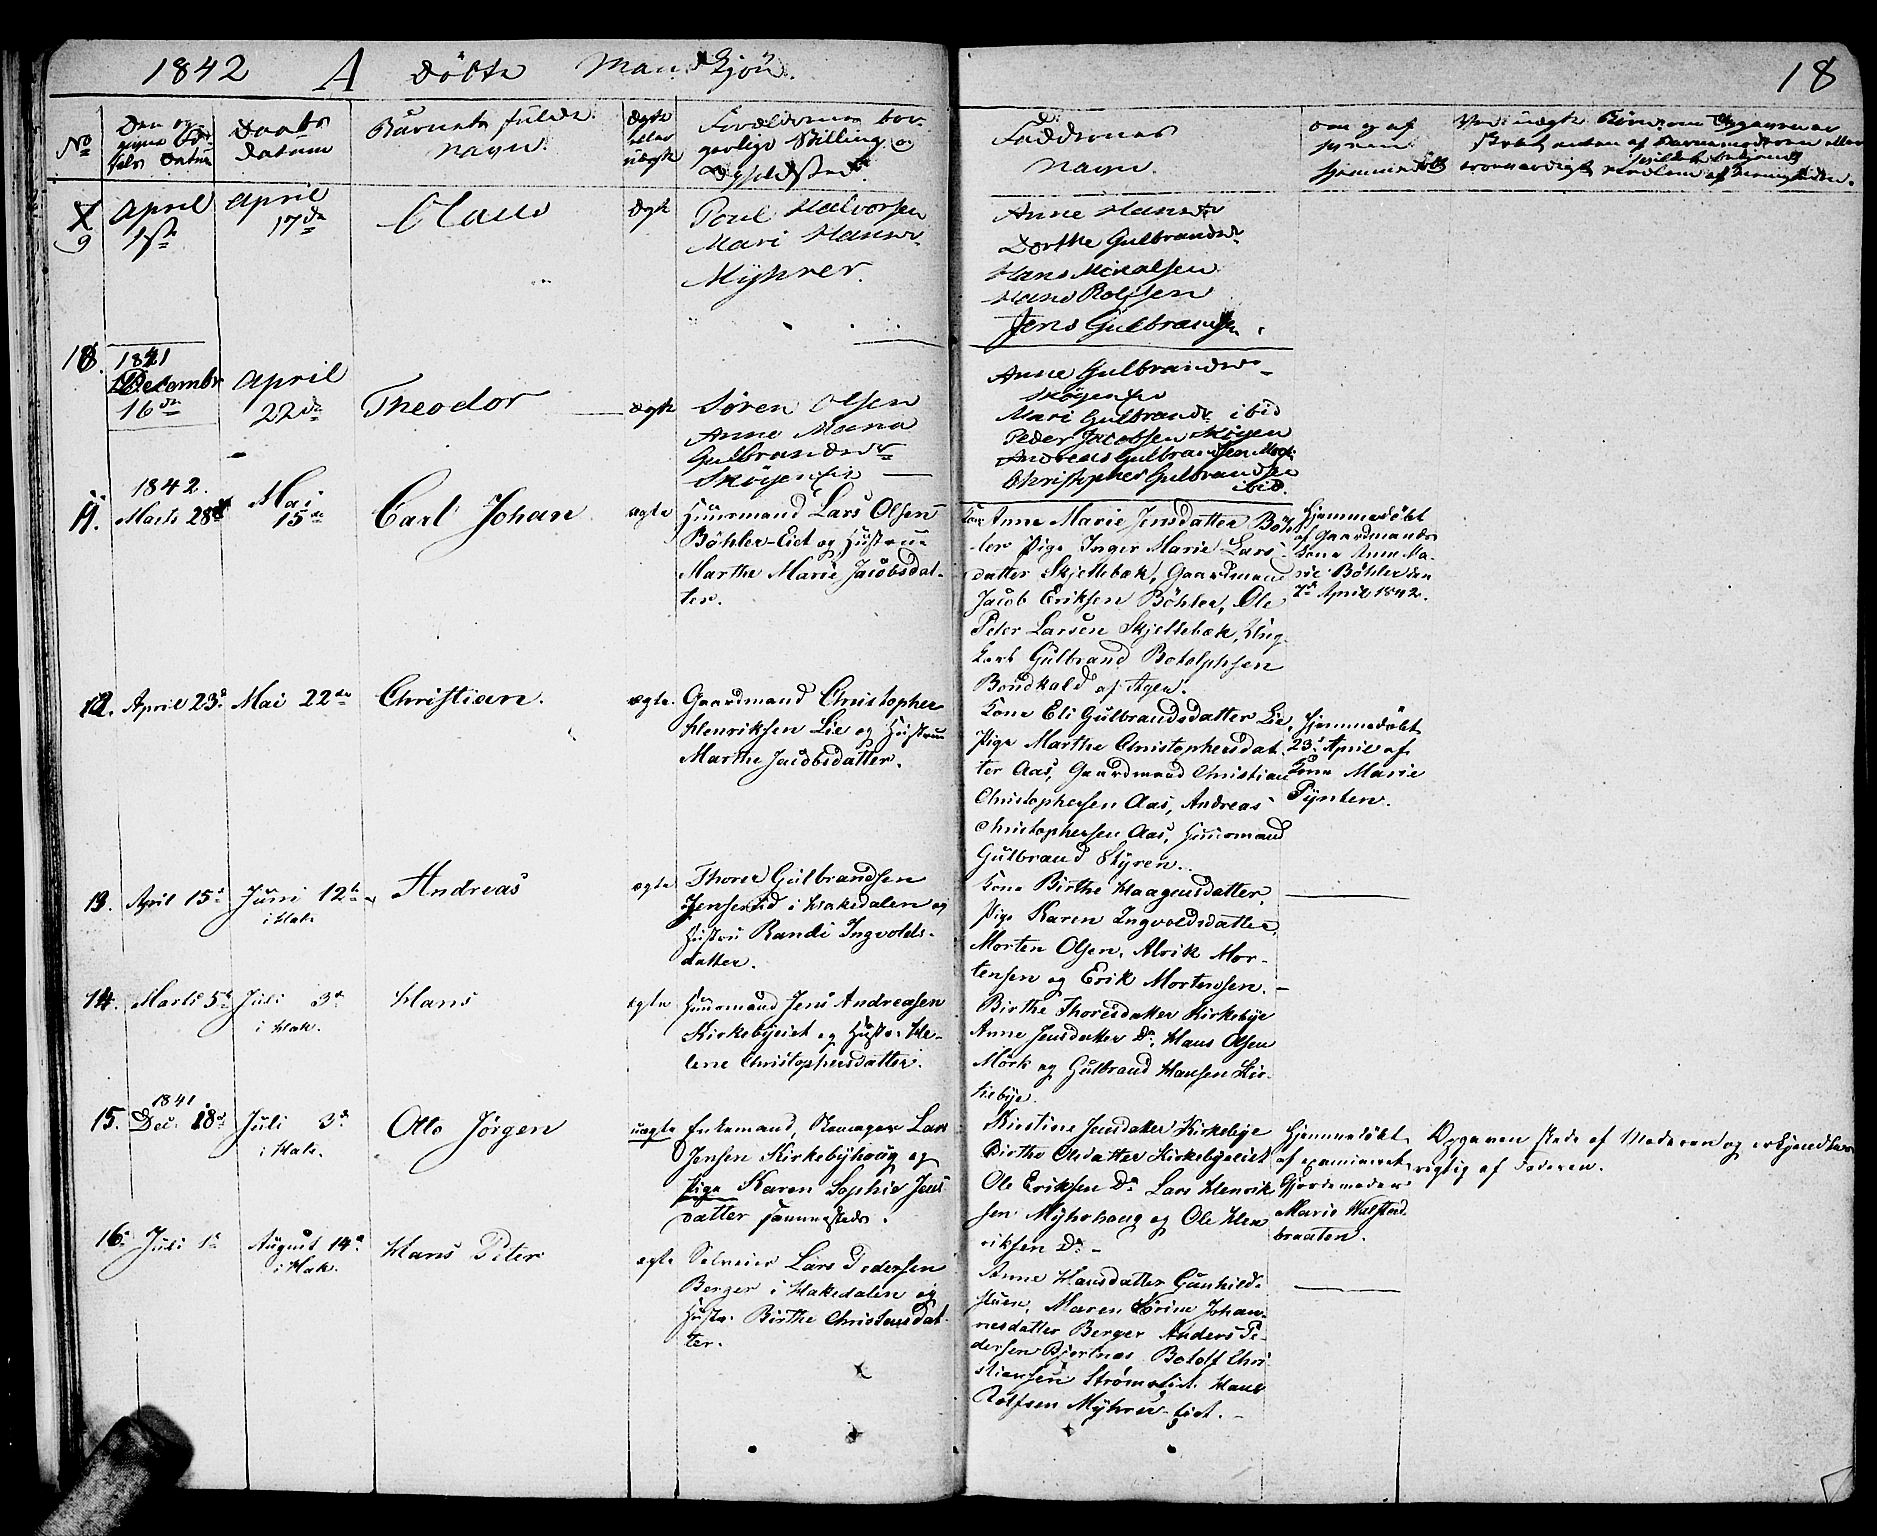 1842 A Döbte Mandkjön.
18
No
Den opgivne Fødsels Datum
Daabs Datum
Barnets fulde Navn.
Ægte eller uægte
Forældrenes borgerlige Stilling og Opholdssted
Faddernes Navn.
Om og af hvem hjemmedøbt
9
April 1ste
April 17de
Claus
Ægte
Poul Halvorsen
Mari Hansd.
Myhrer.
Anne Hansdr
Dorthe Gulbrandsdr
Hans Mikalsen
Hans Rolfsen
Jens Gulbrandsen.
10.
1841
Decembr
16de
April
22de
Theodor
ægte
Søren Olsen
Anne Maria
Gulbrandsdr
Skøyen
Anne Gulbrandsdr
Skøyen
Mari Gulbrandsdr ibid
Peder Jacobsen Skøyen
Andreas Gulbrandsen
Christopher Gulbrandsen
ibid.
11.
1842.
Marts 28de
Mai
15de
Carl Johan
ægte
Huusmand Lars Olsen
Böhler-Eiet og Hustrue
Marthe Marie Jacobsdat-
ter.
Kone Anne Marie Jensdatter Böh-
ler Pige Inger Marie Lars-
datter Skjellebæk, Gaardmand
Jacob Eriksen Böhler, Ole
Peter Larsen Skjellebæk, Ung-
karl Gulbrand Botolphsen
Bondkald af Ager.
Hjemmedöbt
af Gaardmands
Kone Anne Ma-
rie Böhler den
7de April 1842.
12.
April 23d
Mai 22de
Christian.
ægte.
Gaardmand Christopher
Henriksen Lie og Hustrue
Marthe Jacobsdatter.
Kone Eli Gulbrandsdatter Lie,
Pige Marthe Christophersdat-
ter Aas, Gaardmand Christian
Christophersen Aas, Andreas
Christophersen Aas, Huusmand
Gulbrand Styren.
Hjemmedöbt
23d April af
Kone Marie
Pynten.
13.
April 15d
Juni 12te
i Hak.
Andreas
ægte
Thorer Gulbrandsen
Jenseied i Hakedalen og
Hustru Randi Ingvolds-
datter.
Kone Birthe Haagensdatter,
Pige Karen Ingvoldsdatter,
Morten Olsen, Alrik Mor-
tensen og Erik Mortensen.
14.
Marts 5d
Juli 3d
i Hak.
Hans
ægte
Huusmand Jens Andreasen
Kirkebyeiet og Hustr. He-
lene Christophersdatter.
Birthe Thoresdatter Kirkebye
Anne Jensdatter Do. Hans Olsen
Mörk og Gulbrand Hansen Kir-
kebye.
15.
1841
Dec. 18d
Juli 3d
i Hak.
Otto Jörgen
uægte
Enkemand, Lars
Jensen Kirkebyhoug og
Pige Karen Sophie Jens-
datter sammesteds.
Kirstine Jensdatter Kirkebye
Birthe Olsdatter Kirkebyeiet
Ole Eriksen Do Lars Henrik-
sen Myhrhoug og Ole Hen-
riksen Do -
Hjemmedöbt
af examineret
Gjordemoder
Marie Halstad-
braaten.
Opgaven skede af Moderen og erkjendtes
rigtig af Faderen.
16.
Juli 1d
August 14d
i Hak.
Hans Peter
ægte
Selveier Lars Pedersen
Berger i Hakedalen og
Hustr. Birthe Christensdat-
ter.
Anne Hansdatter Gunhilds-
stuen, Maren Karine Johan-
nesdatter Berger Anders Pe-
dersen Bjertnæs Botolf Chri-
stiansen Strömseiet. Hans
Rolfsen Myhrer-Eiet.